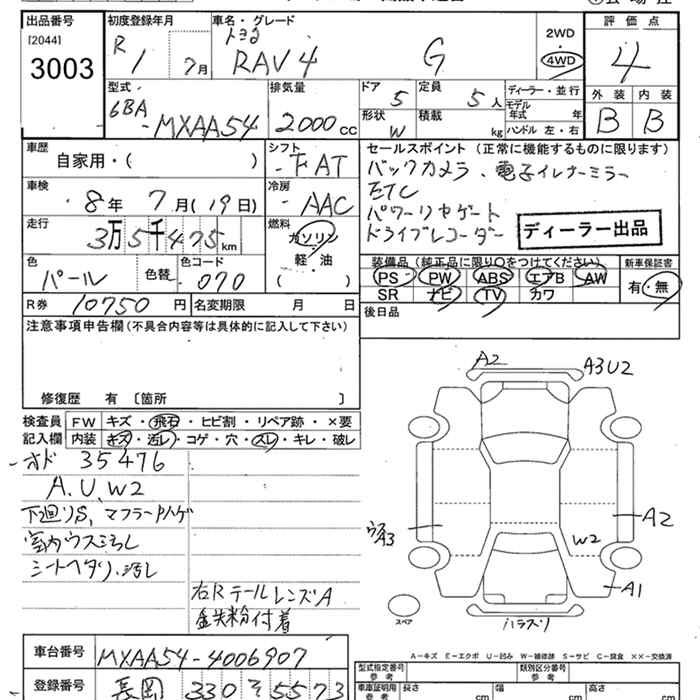 出品番号
[2044]
3003
初度登録年月
R 1 7月
車名・グレード
トヨタ
RAV4 G
2WD
4WD
評価点
4
型式
6BA
-MXAA54
排気量
2000cc
ドア
5
定員
5人
形状
W
積載
kg
ディーラー・並行
モデル年式 年
ハンドル 左・右
外装 内装
B B
車歴
自家用・( )
シフト
-FAT
セールスポイント (正常に機能するものに限ります)
バックカメラ、電子インナーミラー
ETC
パワーリヤゲート
ドライブレコーダー
ディーラー出品
車検
8年 7月(19日)
冷房
AAC
走行
3万5千475km
燃料
ガソリン
軽・油
( )
色
パール
色替
色コード
070
装備品(純正品に限り○をつけてください)
PS PW ABS エアB AW
SR ナビ TV カワ
新車保証書
有・無
R券 10750円
名変期限 月 日
後日品
注意事項申告欄(不具合内容等は具体的に記入して下さい)
修復歴 有 〔箇所 〕
検査員記入欄
FW キズ・飛石・ヒビ割・リペア跡・×要
内装 キズ・汚レ・コゲ・穴・スレ・キレ・破レ
-オド 35476
A.U.W2
下廻りS、マフラーP.ハゲ
室内ウス汚レ
シートヘタリ.汚レ
右Rテールレンズ A
鉄粉付着
A2
A3U2
A2
A3
W2
A1
スペア
A-キズ E-エクボ U-凹み W-補修跡 S-サビ C-腐食 ××-交換済
車台番号 MXAA54-4006907
登録番号 長岡 330 そ 5573
型式指定番号 参考
類別区分番号 参考
車庫証明用 参考
長さ cm
幅 cm
高さ cm